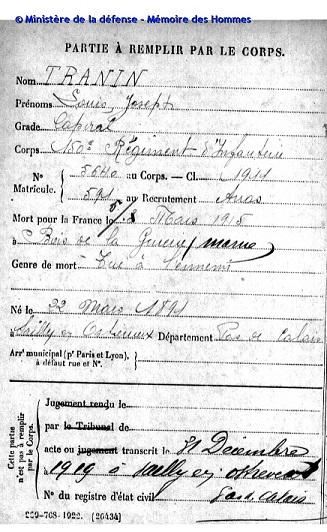 © Ministère de la défense - Mémoire des Hommes
PARTIE À REMPLIR PAR LE CORPS.
Nom TRANIN
Prénoms Louis, Joseph
Grade Caporal
Corps 150e Régiment d'Infanterie
N° 5640 au Corps. — Cl. 1911
Matricule. 591 au Recrutement Arras
Mort pour la France le 8 Mars 1915
à Bois de la (marne)
Genre de mort Tué à l'ennemi
Né le 22 Mars 1891
à Sailly en Ostrevent Département Pas de Calais
Arr' municipal (p' Paris et Lyon),
à défaut rue et N°.
Cette partie n'est pas à remplir par le Corps.
Jugement rendu le
par le Tribunal de
acte ou jugement transcrit le 31 Décembre
1919 à Sailly en Ostrevent
N° du registre d'état civil Pas de Calais
229-708-1922. [26434]